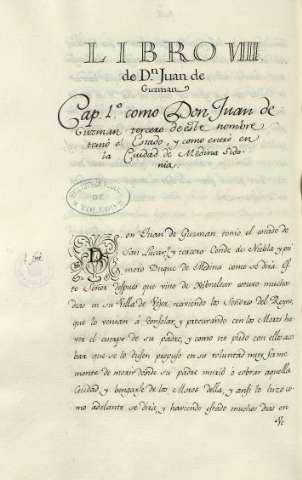 LIBRO VIII
de D.n Juan de
Guzman
Cap. 1.º como Don Juan de
Guzman tercero de este nombre
tomó el Estado, y como entró en
la Ciudad de Medina Sido
nia.
Don Juan de Guzman, tomó el estado de
San Lucar, y tercero Conde de Niebla y pri
mero Duque de Medina como se dirá. Es
te Señor despues que vino de Gibraltar estuvo muchos
dias en su Villa de, los Señores del Reyno,
que lo venian á consolar, y procurando con los Moros ha
ver el cuerpo de su padre, y como no pudo con ellos aca
bar que se lo diesen propuso en su voluntad muy firme
mente de morir donde su padre murió ó cobrar aquella
Ciudad y bengarse de los Moros della, y ansi lo hizo co
mo adelante se dirá y haviendo estado muchos dias en